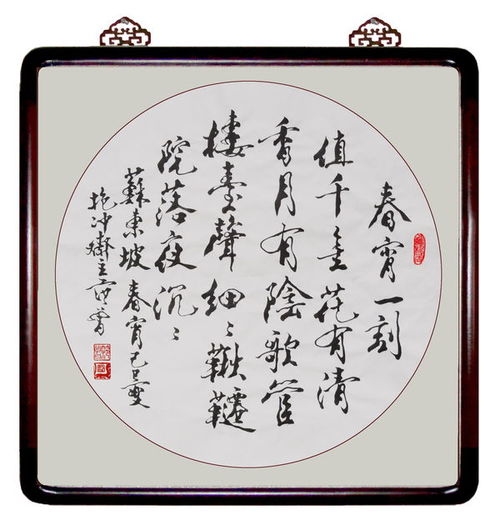 春宵一刻
值千金花有清
香月有陰歌管
樓臺聲細〻鞦韆
院落夜沉〻
蘇東坡春宵己丑夏
抱冲齋主范曾